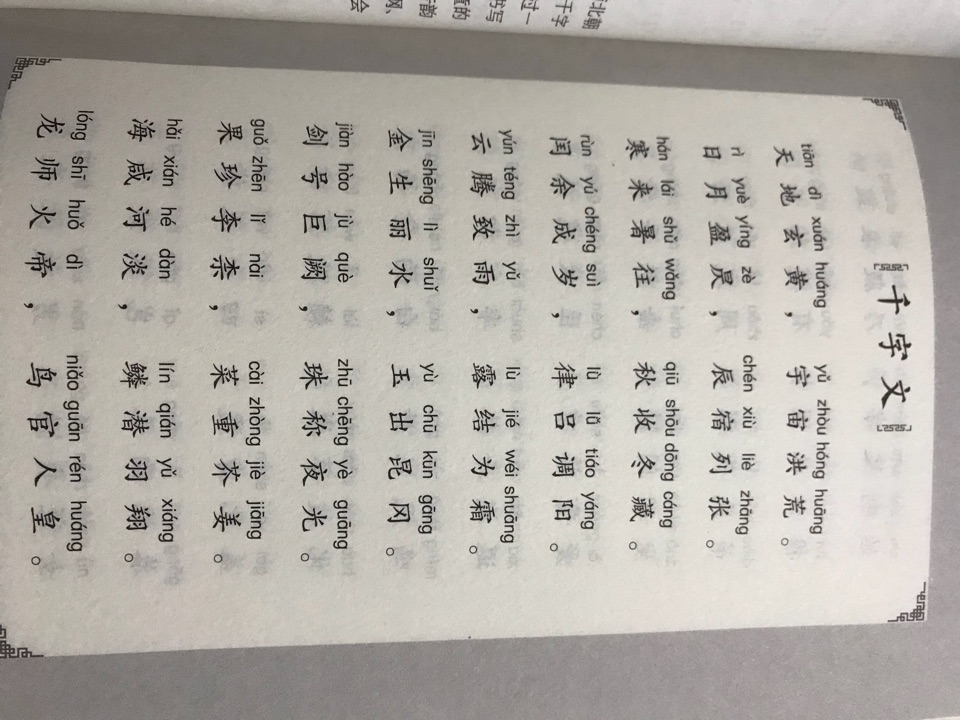 千字文
tiān dì xuán huáng yǔ zhòu hóng huāng
天地玄黄，宇宙洪荒。
rì yuè yíng zè chén xiù liè zhāng
日月盈昃，辰宿列张。
hán lái shǔ wǎng qiū shōu dōng cáng
寒来暑往，秋收冬藏。
rùn yú chéng suì lǜ lǚ tiáo yáng
闰余成岁，律吕调阳。
yún téng zhì yǔ lù jié wéi shuāng
云腾致雨，露结为霜。
jīn shēng lì shuǐ yù chū kūn gāng
金生丽水，玉出昆冈。
jiàn hào jù què zhū chēng yè guāng
剑号巨阙，珠称夜光。
guǒ zhēn lǐ nài cài zhòng jiè jiāng
果珍李柰，菜重芥姜。
hǎi xián hé dàn lín qián yǔ xiáng
海咸河淡，鳞潜羽翔。
lóng shī huǒ dì niǎo guān rén huáng
龙师火帝，鸟官人皇。